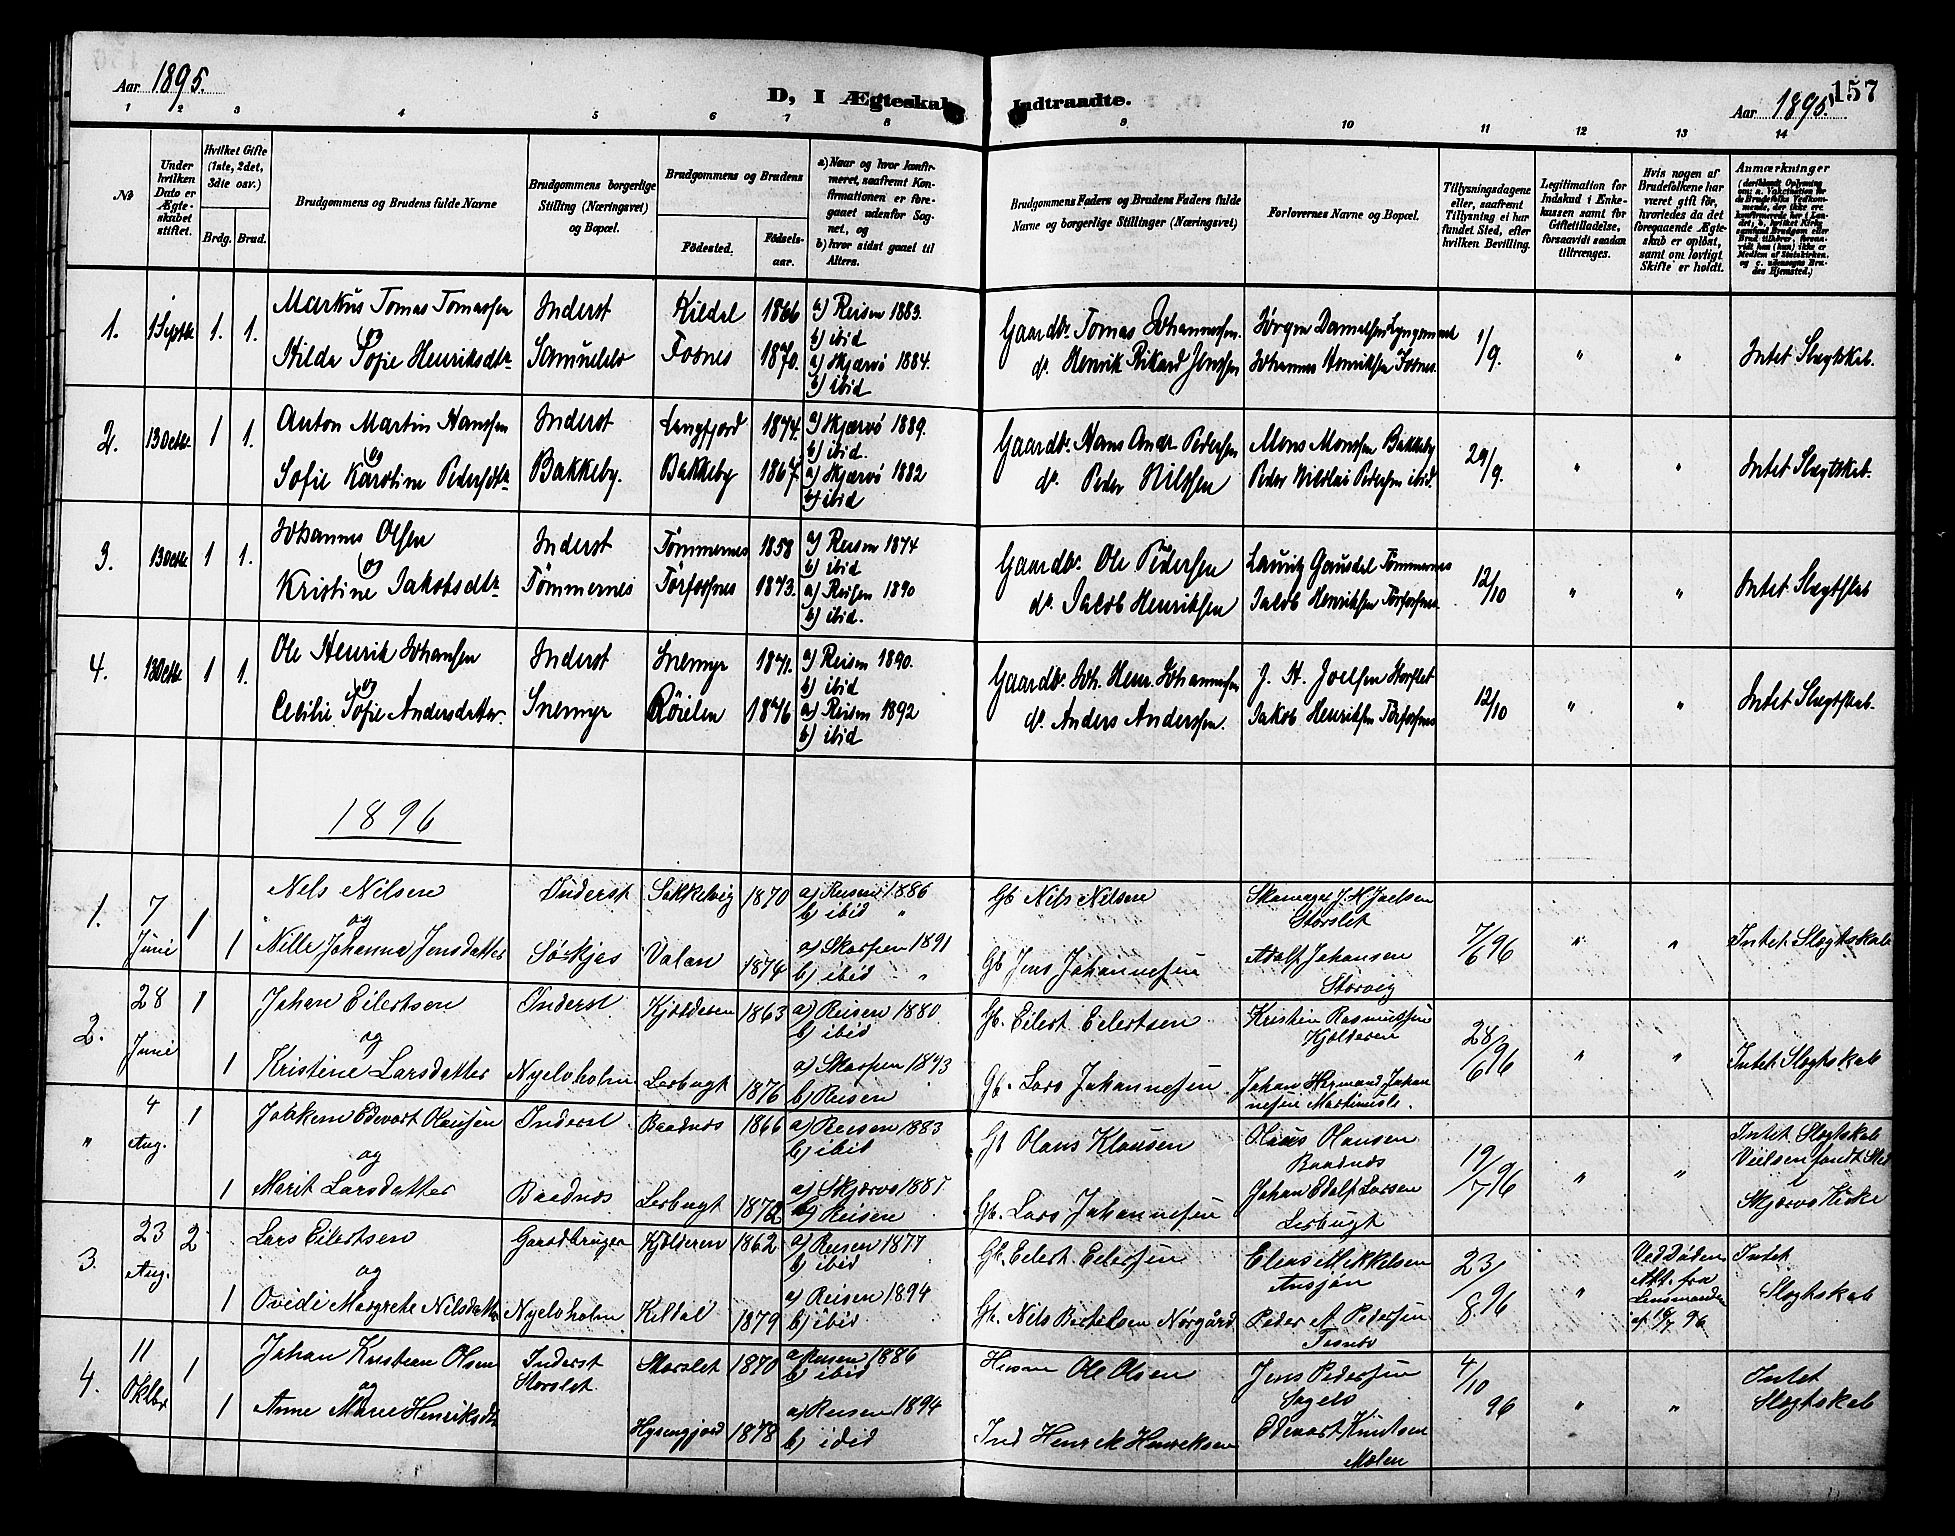 Aar 1895.
D, I Ægteskab Indtraadte.
Aar 1895.
157
1 2 3 4 5 6 7 8 9 10 11 12 13 14
No
Under hvilken Dato er Ægteskabet stiftet.
Hvilket Gifte (1ste, 2det, 3die osv.)
Brdg. Brud.
Brudgommens og Brudens fulde Navne
Brudgommens borgerlige Stilling (Næringsvei) og Bopæl.
Brudgommens og Brudens
Fødested. Fødselsaar.
a) Naar og hvor konfirmeret, saafremt Konfirmationen er foregaaet udenfor Sognet, og
b) hvor sidst gaaet til Alters.
Brudgommens Faders og Brudens Faders fulde Navne og borgerlige Stillinger (Næringsvei)
Forlovernes Navne og Bopæl.
Tillysningsdagene eller, saafremt Tillysning ei har fundet Sted, efter hvilken Bevilling.
Legitimation for Indskud i Enkekassen samt for Giftetilladelse, forsaavidt saadan tiltrænges.
Hvis nogen af Brudefolkene har været gift før, hvorledes da det foregaaende Ægteskab er opløst, samt om lovligt Skifte er holdt.
Anmærkninger
1. 1 Septbr 1. 1. Markus Tomas Tomassen Inderst Kildal 1866 a) Reisen 1883. b) ibid Gaardbr. Tomas Johannessen. Jørgen Danielsen 1/9. " " Intet Slægtskab.
og
Hilda Sofie Henriksdtr Samuelelv Fosnes 1870. a) Skjærvø 1884. b) ibid do. Henrik Rikard Jenssen Johannes Henriksen Fosnes.
2. 13 Octbr 1 1. Anton Martin Hanssen Inderst Langfjord 1874. a) Skjærvø 1889. b) ibid. Gaardbr. Hans Andr. Pedersen Mons Monssen Bakkeby 29/9. " " Intet Slægtskab.
og
Sofie Karoline Pedersdtr Bakkeby. Bakkeby 1867. a) Skjærvø 1882 b) ibid do. Peder Nilssen Peder Nikolai Pedersen ibid.
3. 13 Octbr 1 1. Johannes Olsen Inderst Tømmernes 1858 a) Reisen 1874 b) ibid Gaardbr. Ole Pedersen Lauritz Gausdal Tømmernes 12/10 " " Intet Slægtskab
og
Kristine Jakobsdtr Tømmernes Torfosnes 1873. a) Reisen 1890 b) ibid. do. Jacob Henriksen Jakob Henriksen Torfosnes.
4. 13 Octbr 1 1. Ole Henrik Johansen Inderst Snemyr 1871. a) Reisen 1890. b) ibid Gaardbr. Joh. Henr. Johannessen J. H. Joelsen Storslet 12/10 " " Intet Slægtskab.
og
Cecilie Sofie Andersdatter. Snemyr Røielen 1876 a) Reisen 1892 b) ibid do. Anders Anderssen. Jakob Henriksen Torfosnes
1896
1. 7 Juni 1 Nels Nilsen Inderst Sakkelvig 1870 a) Reisen 1886 b) ibid " Gb Nils Nilsen J. H. Joelsen Storslet 7/6 96 " " Intet Slægtskab
og
1 Nille Johanna Jensdatter Sørkjos Valan 1874 a) Skarpen 1891 b) ibid " Gb Jens Johannesen Adolf Johansen Storvig
2. 28 Juni 1 Johan Eilertsen Inderst Kjølderen 1863 a) Reisen 1880 b) ibid Gb. Eilert Eilertsen Kristin Rasmussen Kjølderen 28/6 96 " " Intet Slægtskab
og
1 Kristine Larsdatter Nyelvholm Lerbugt 1876 a) Skarpen 1893 b) Reisen Gb. Lars Johannesen Johan Hermand Johannesen
" 4 Aug. 1 Joakem Edevart Olausen Inderst Baadnes 1866 a) Reisen 1883 b) ibid Gb Olaus Klausen Olaus Olausen Baadnes 19/7 96 " " Intet Slægtskab Veilsen fandt Sted i Skjærvø Kirke
og
1 Marit Larsdatter Baadnes Lerbugt 1872 a) Skjærvø 1887 b) Reisen Gb. Lars Johannesen Johan Edolf Larsen Lerbugt
3. 23 Aug. 2 Lars Eilertsen Gaardbruger Kjølderen 1862 a) Reisen 1877 b) ibid Gb. Eilert Eilertsen Elias Mikkelsen 23/8. 96 " Ved Døden Att. fra Lensmanden Intet Slægtskab
og
1 Ovidi Margrete Nilsdatter Nyelvholm Kildal 1879 a) Reisen 1894 b) ibid Gb. Nils Bertelsen Nørgård Peder A Pedersen
4. 11 Oktbr 1 Johan Kristian Olsen Inderst Storslet Storslet 1870 a) Reisen 1886 b) ibid Ole Olsen Jens Pedersen Sagelv 4/10 96 " " Intet Slægtskab
og
1 Anne Marie Henriksdtr 1878 a) Reisen 1894 b) idid Ind Henrik Henriksen Edevart Knutsen Molen